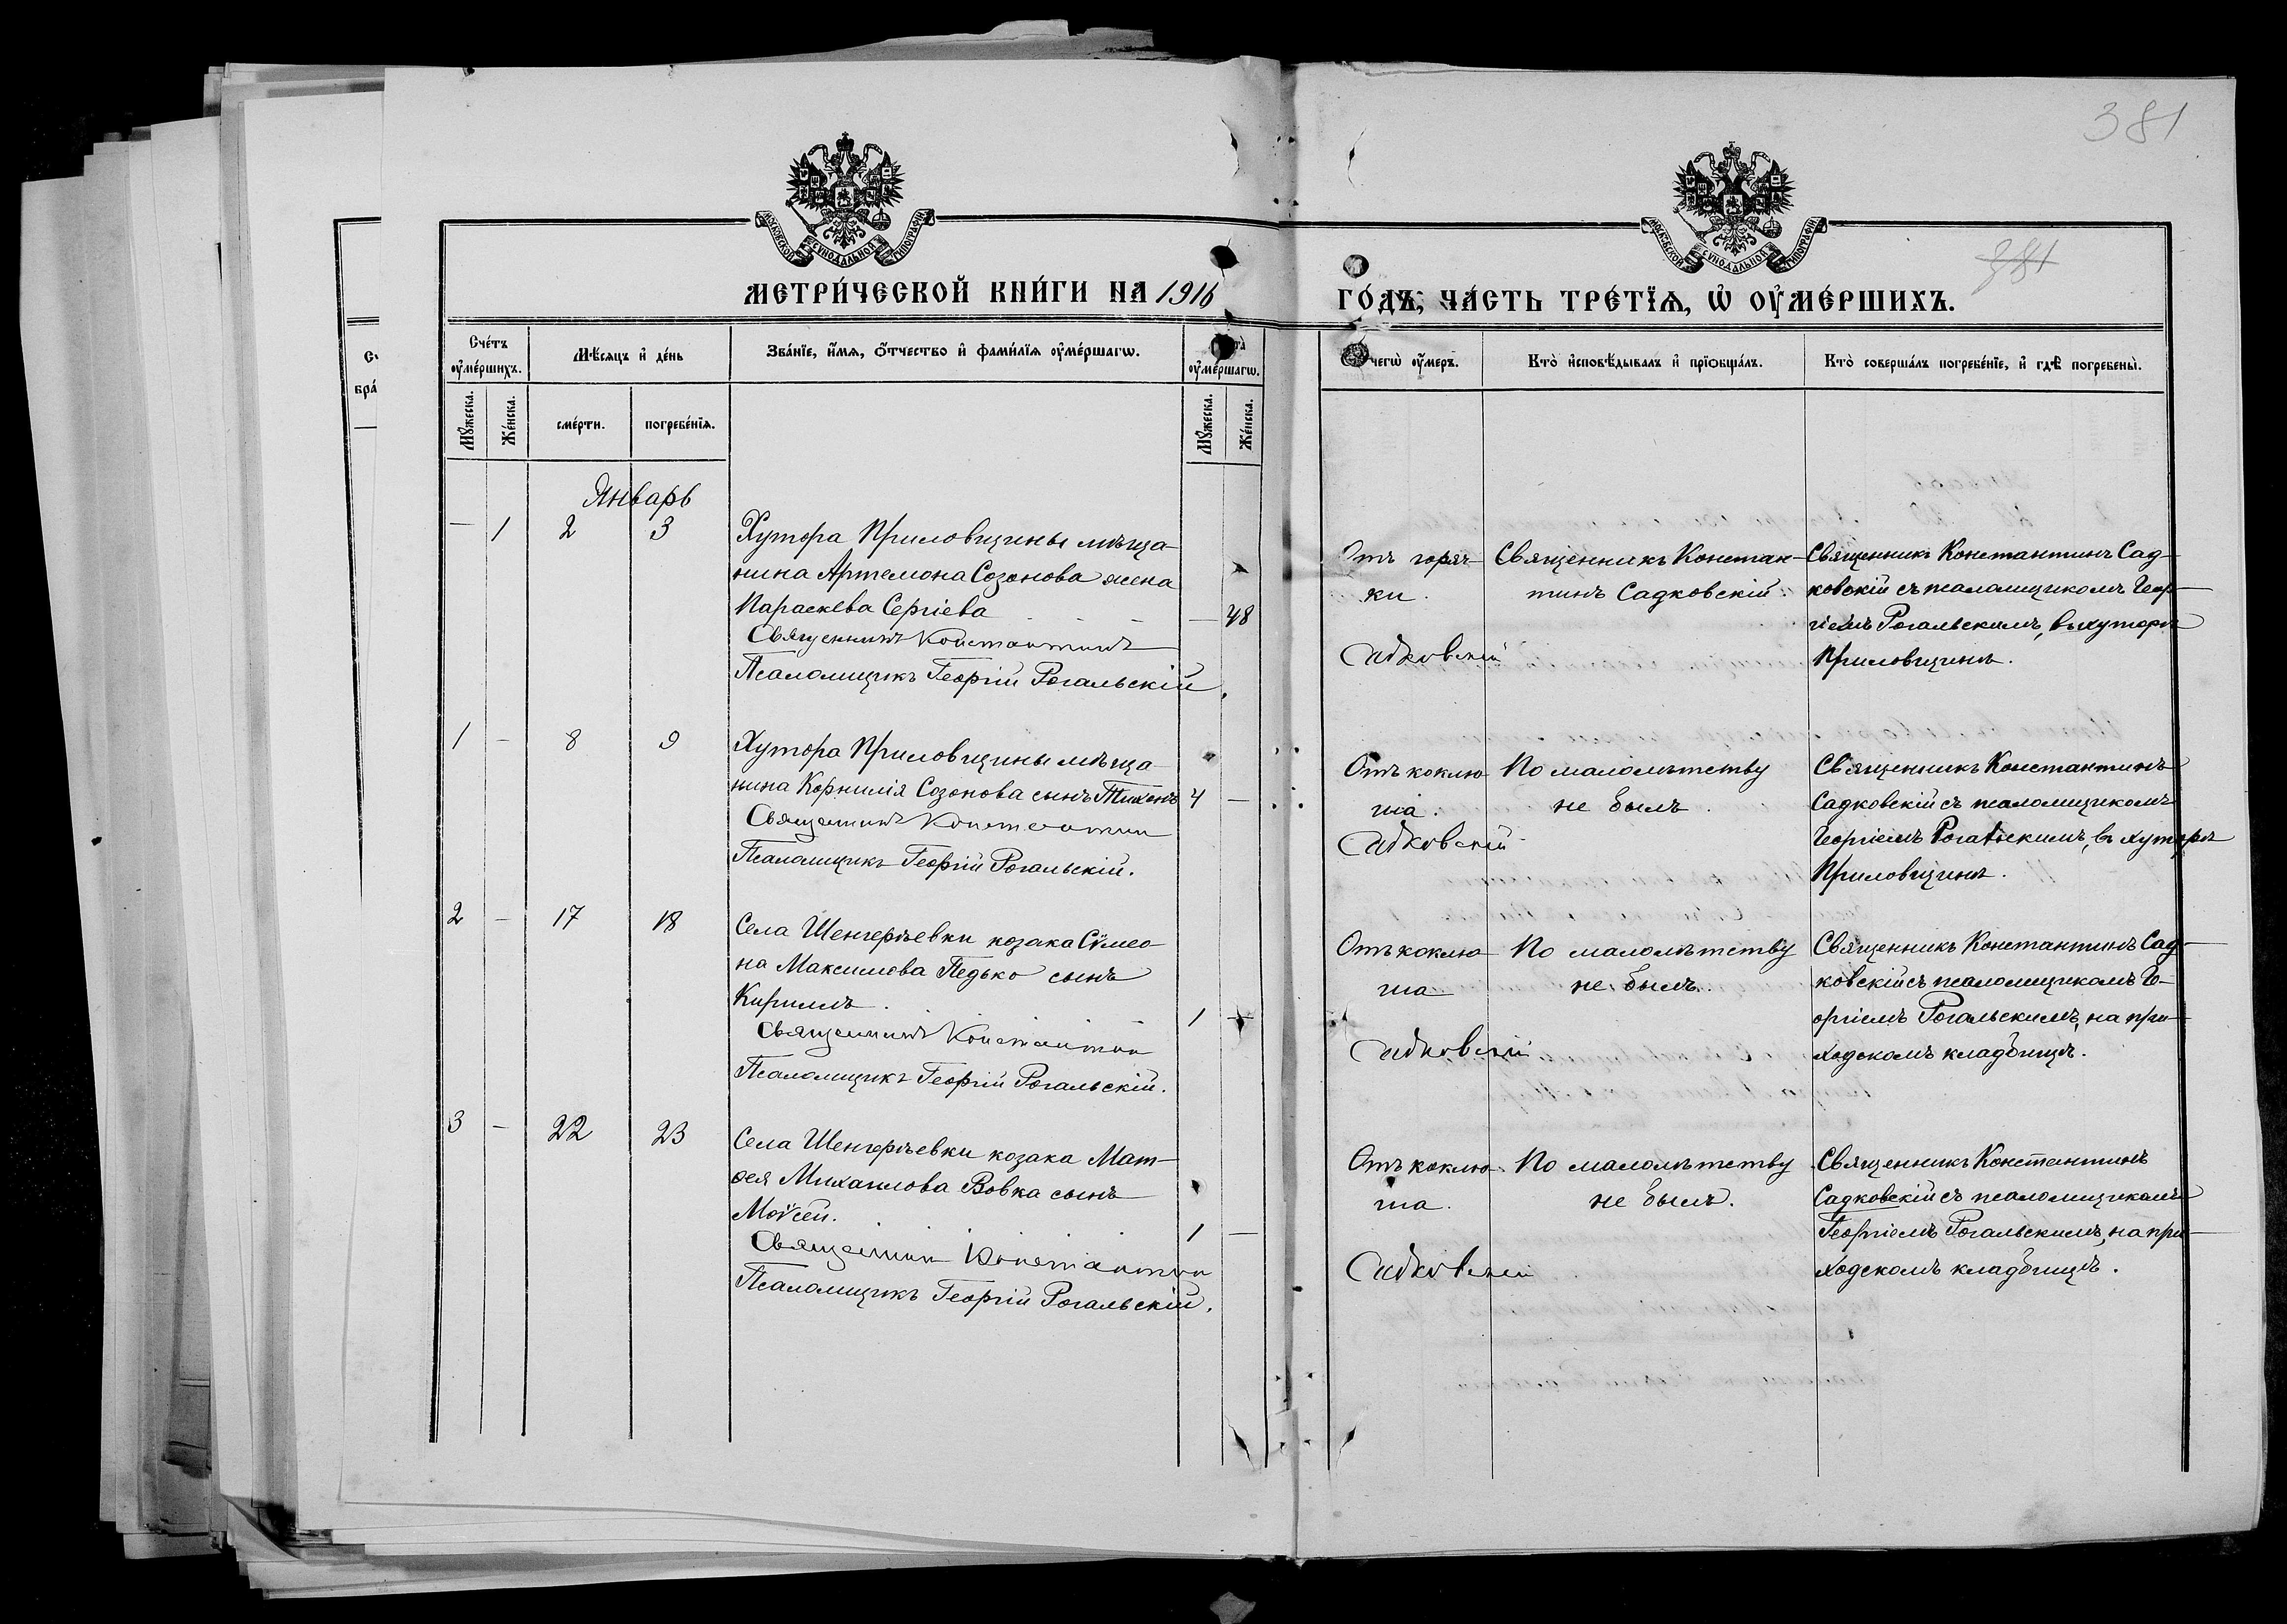 381
МОСКОВСКОЙ СУНОДАЛЬНОЙ ТИПОГРАФІИ
МОСКОВСКОЙ СУНОДАЛЬНОЙ ТИПОГРАФІИ
381
МЕТРИ́ЧЕСКОЙ КНИ́ГИ НА 1916
ГО́ДЪ, ЧА́СТЬ ТРЕ́ТЇѦ, Ѡ҆ ОУ҆МЕ́РШИХЪ.
Сче́тъ оу҆ме́ршихъ.
Мѣ́сѧцъ и҆ де́нь
Зва́нїе, и҆́мѧ, ѻ҆́тчество и҆ фами́лїѧ оу҆ме́ршагѡ.
оу҆ме́ршагѡ.
чегѡ̀ оу҆́меръ.
Кто̀ и҆сповѣ́дывалъ и҆ прїѡбща́лъ.
Кто̀ соверша́лъ погребе́нїе, и҆ гдѣ̀ погребены̀.
Мꙋ́жеска.
Же́нска.
сме́рти.
погребе́нїѧ.
Мꙋ́жеска.
Же́нска.
Январь
— 1 2 3
Хутора Приловщины мѣща-
нина Артемона Созонова жена
Параскева Сергіева — 48
Священникъ Константинъ Садковскій
Псаломщикъ Георгій Рогальскій.
Отъ горяч-
ки.
Священникъ Констан-
тинъ Садковскій.
Священникъ Константинъ Сад-
ковскій съ псаломщикомъ Геор-
гіемъ Рогальскимъ, въ хуторѣ
Приловщинѣ.
1 — 8 9
Хутора Приловщины мѣща-
нина Корнилія Созонова сынъ Тихонъ 4 —
Священникъ Константин Садковскій
Псаломщикъ Георгій Рогальскій.
Отъ коклю-
ша.
По малолѣтству
не былъ.
Священникъ Константинъ
Садковскій съ псаломщикомъ
Георгіемъ Рогальскимъ, въ хуторѣ
Приловщинѣ.
2 — 17 18
Села Шенгерѣевки козака Сѵмео-
на Максимова Педько сынъ
Кириллъ. 1 —
Священникъ Константин Садковскій
Псаломщикъ Георгій Рогальскій.
Отъ коклю-
ша
По малолѣтству
не былъ.
Священникъ Константинъ Сад-
ковскій съ псаломщикомъ Ге-
оргіемъ Рогальскимъ, на при-
ходскомъ кладбищѣ.
3 — 22 23
Села Шенгерѣевки козака Мат-
ѳея Михаилова Вовка сынъ
Моѵсей. 1 —
Священник Константин Садковскій
Псаломщикъ Георгій Рогальскій.
Отъ коклю-
ша.
По малолѣтству
не былъ.
Священникъ Константинъ
Садковскій съ псаломщикомъ
Георгіемъ Рогальскимъ, на при-
ходскомъ кладбищѣ.